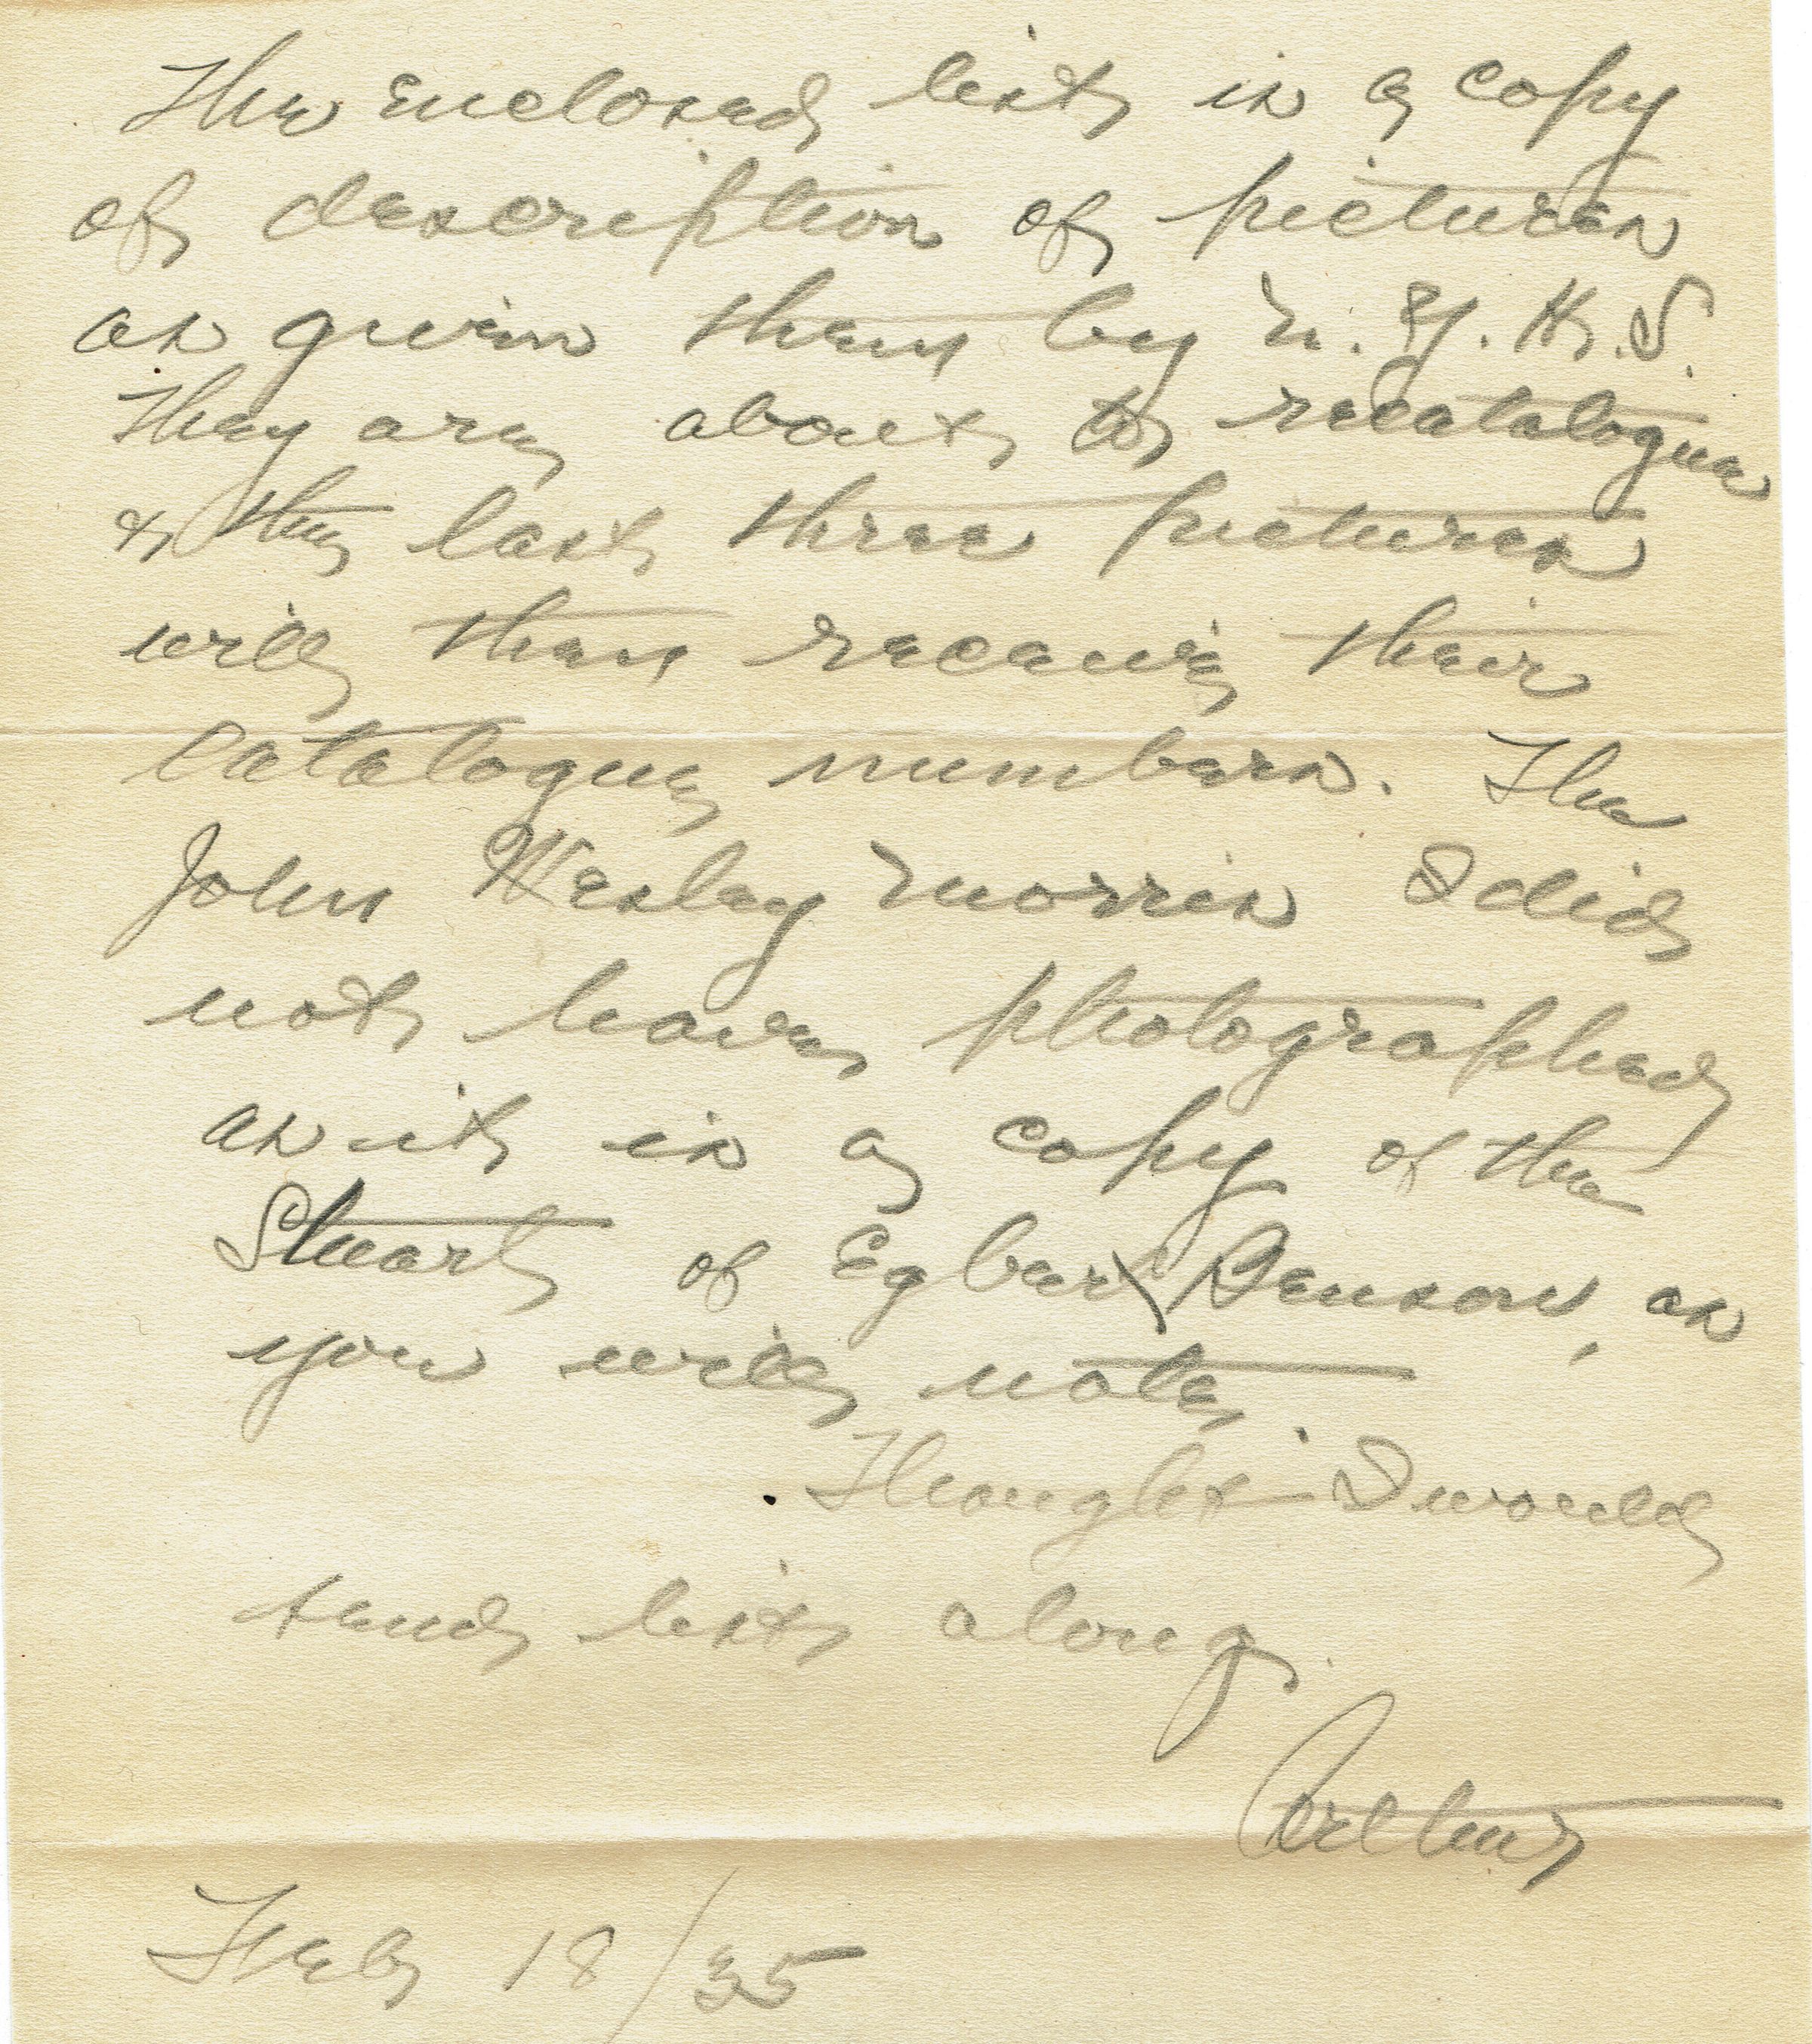 The enclosed list is a copy
of description of pictures
as given them by N. Y. H. S.
They are about to recatalogue
& the last three pictures
will then receive their
catalogue numbers. The
John Wesley Morris I did
not have photographed
as it is a copy of the
Stuart of Egbert Benson, as
you will note.
Thought I would
send list along.
Arthur
Feb 18/35